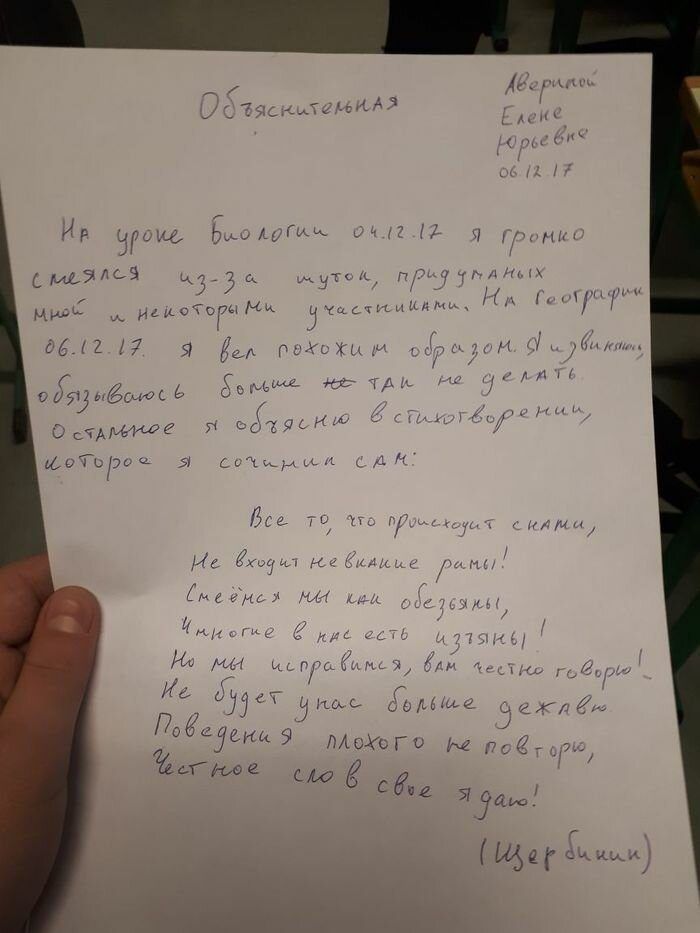 Объяснительная
Авериной
Елене
Юрьевне
06.12.17
На уроке Биологии 04.12.17 я громко
смеялся из-за шуток, придуманых
мной и некоторыми участниками. На географии
06.12.17. я вел похожим образом. Я извиняюсь,
обязываюсь больше не так не делать.
Остальное я объясню в стихотворении,
которое я сочинил сам:
Все то, что происходит снами,
Не входит невкакие рамы!
Смеёмся мы как обезьяны,
Имногие в нас есть изъяны!
Но мы исправимся, вам честно говорю!
Не будет унас больше дежавю.
Поведения плохого не повторю,
Честное слов свое я даю!
(Щербинин)